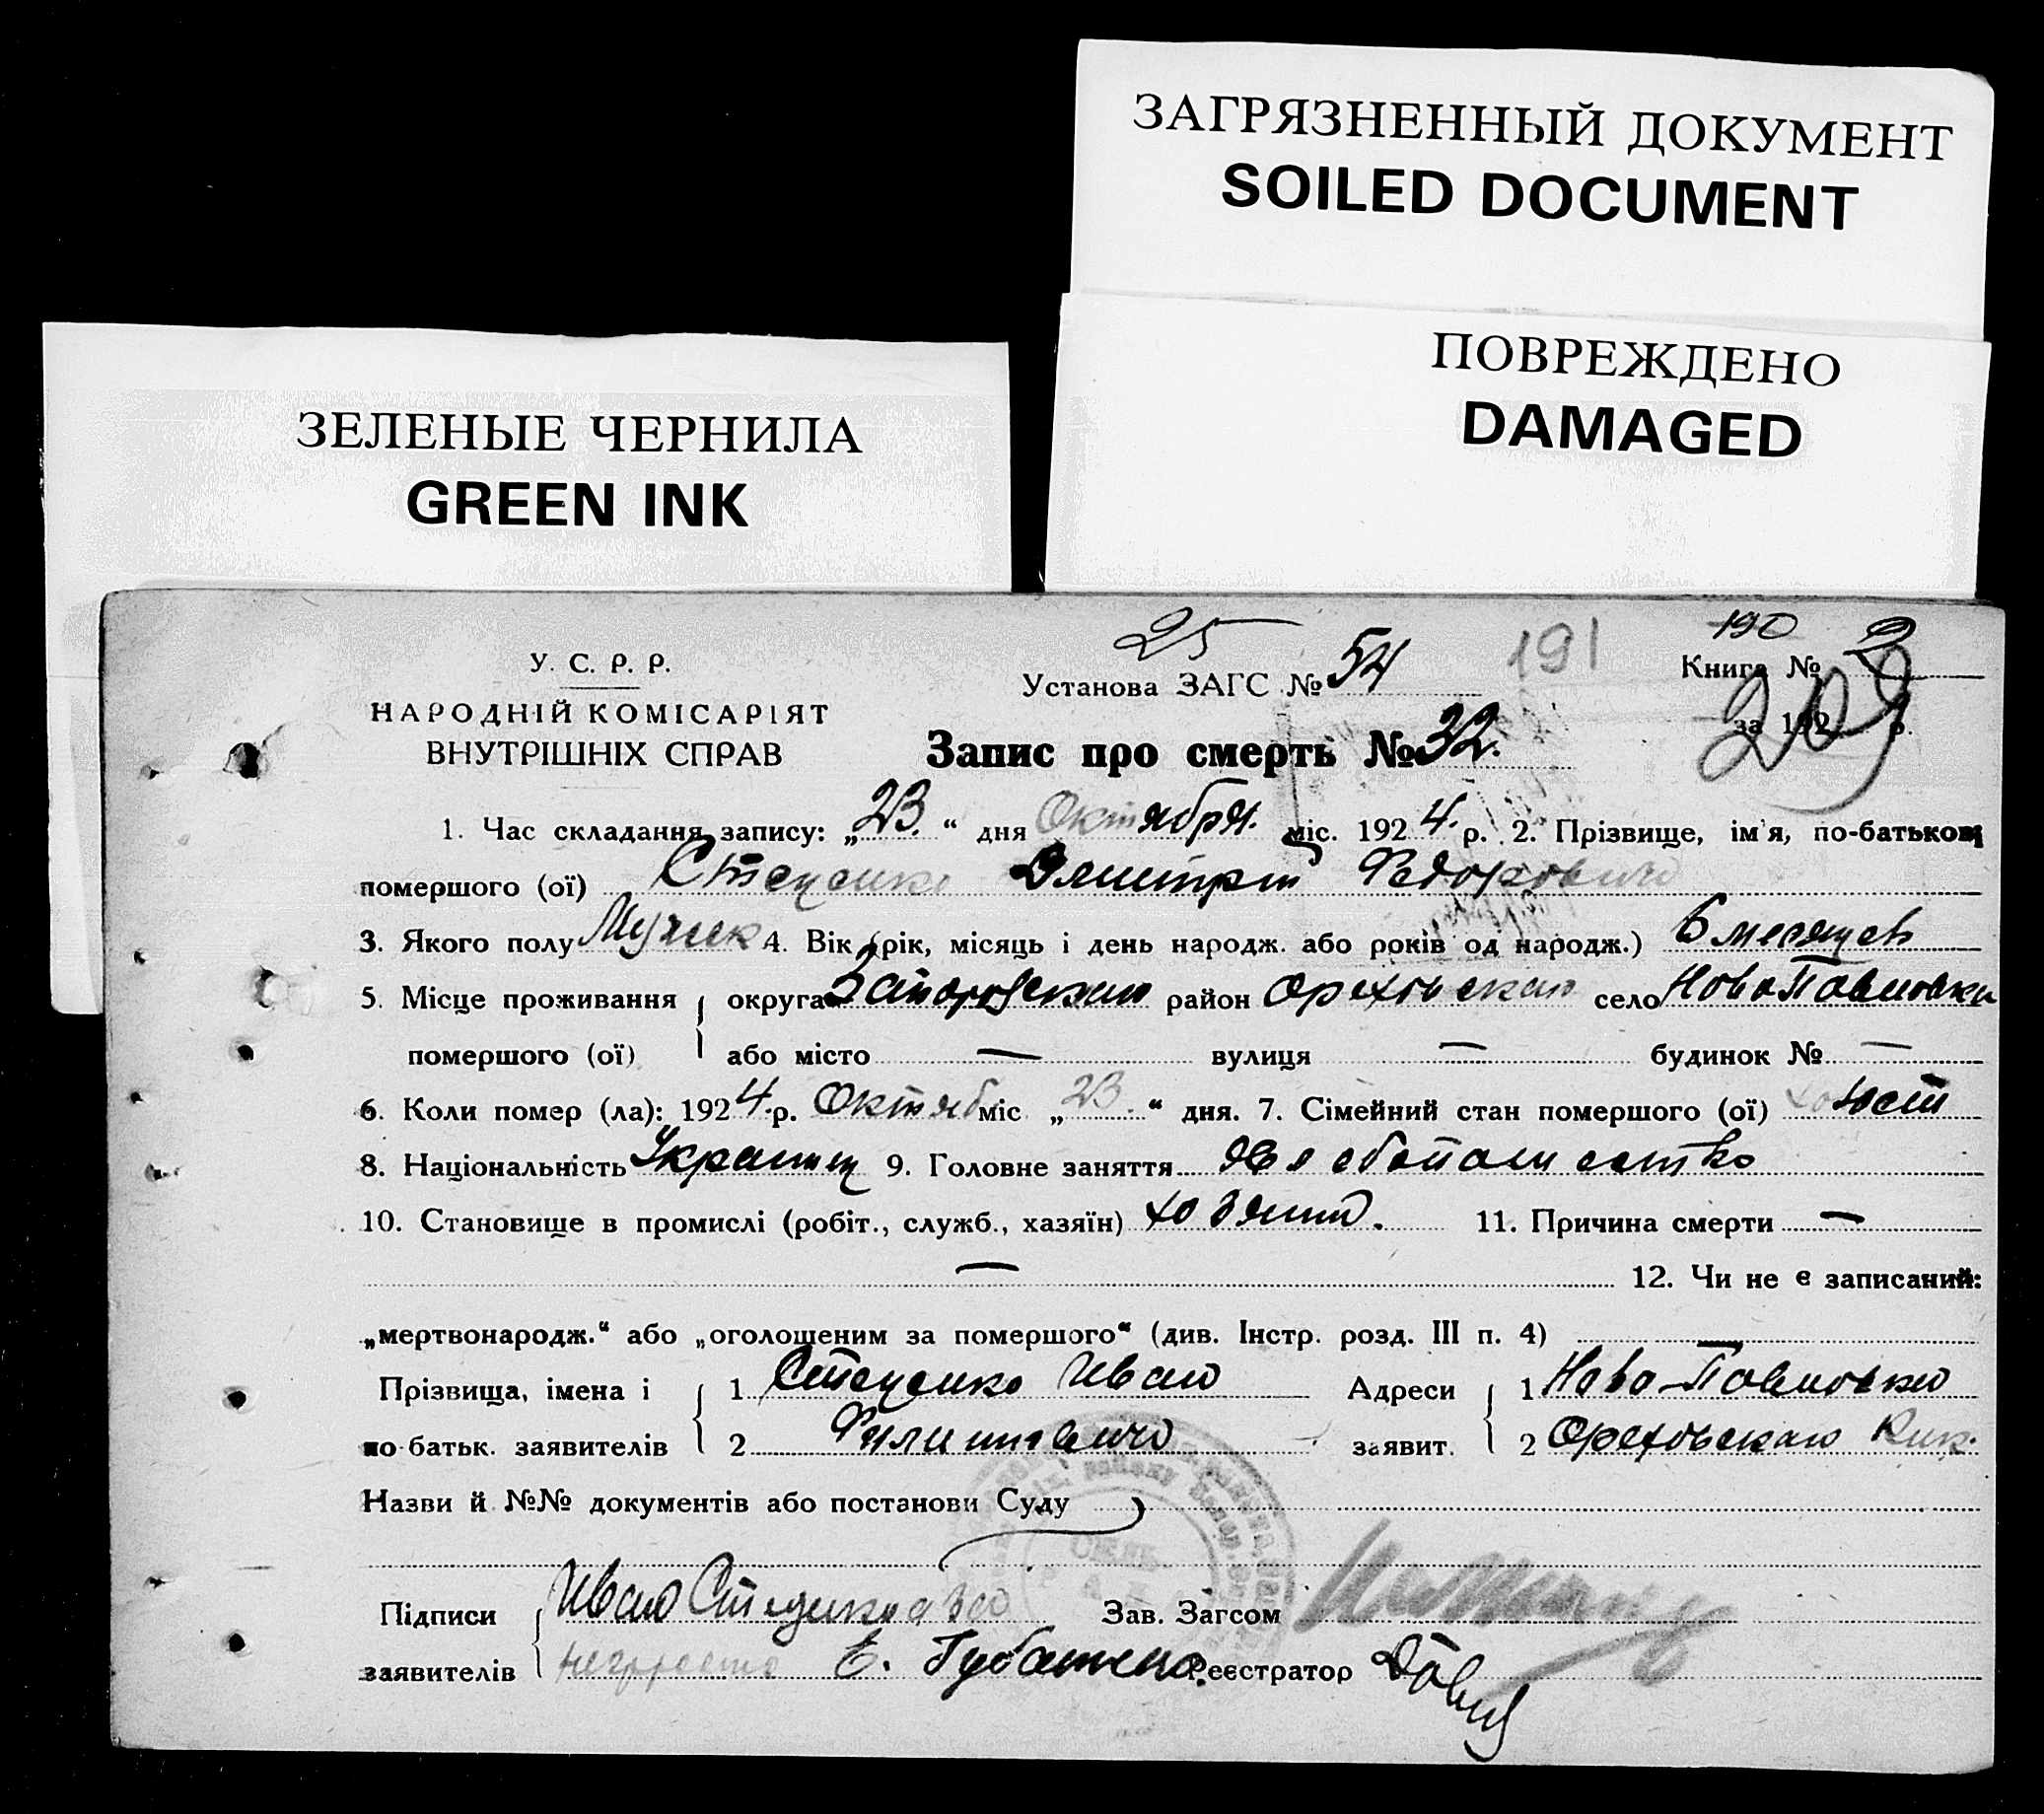 ЗАГРЯЗНЕННЫЙ ДОКУМЕНТ
SOILED DOCUMENT
ПОВРЕЖДЕНО
DAMAGED
ЗЕЛЕНЫЕ ЧЕРНИЛА
GREEN INK
25 191 190
У. С. Р. Р. Установа ЗАГС № 54 Книга № 2
209
НАРОДНІЙ КОМІСАРІЯТ за 192 р.
ВНУТРІШНІХ СПРАВ Запис про смерть № 32.
1. Час складання запису: „23.“ дня Октября міс. 1924. р. 2. Прізвище, ім'я, по-батькові
помершого (ої) Стеценко Дмитрий Федорович
3. Якого полу Мужск 4. Вік (рік, місяць і день народж. або років од народж.) 6 месяцев
5. Місце проживання округа Запорожская район Ореховская село Ново Павловка
помершого (ої) або місто — вулиця — будинок № —
6. Коли помер (ла): 1924. р. Октяб міс „23.“ дня. 7. Сімейний стан помершого (ої) холост
8. Національність Украинец 9. Головне заняття
10. Становище в промислі (робіт., служб., хазяїн) хозяин. 11. Причина смерти —
— 12. Чи не є записаний:
„мертвонародж.“ або „оголошеним за помершого“ (див. Інстр. розд. III п. 4) —
Прізвища, імена і 1 Стеценко Иван Адреси 1 Ново-Павловка
по батьк. заявителів 2 Филиппович заявит. 2 Ореховская
Назви й №№ документів або постанови Суду
Підписи Иван Стеценко а за Зав. Загсом
заявителів Е. Реєстратор